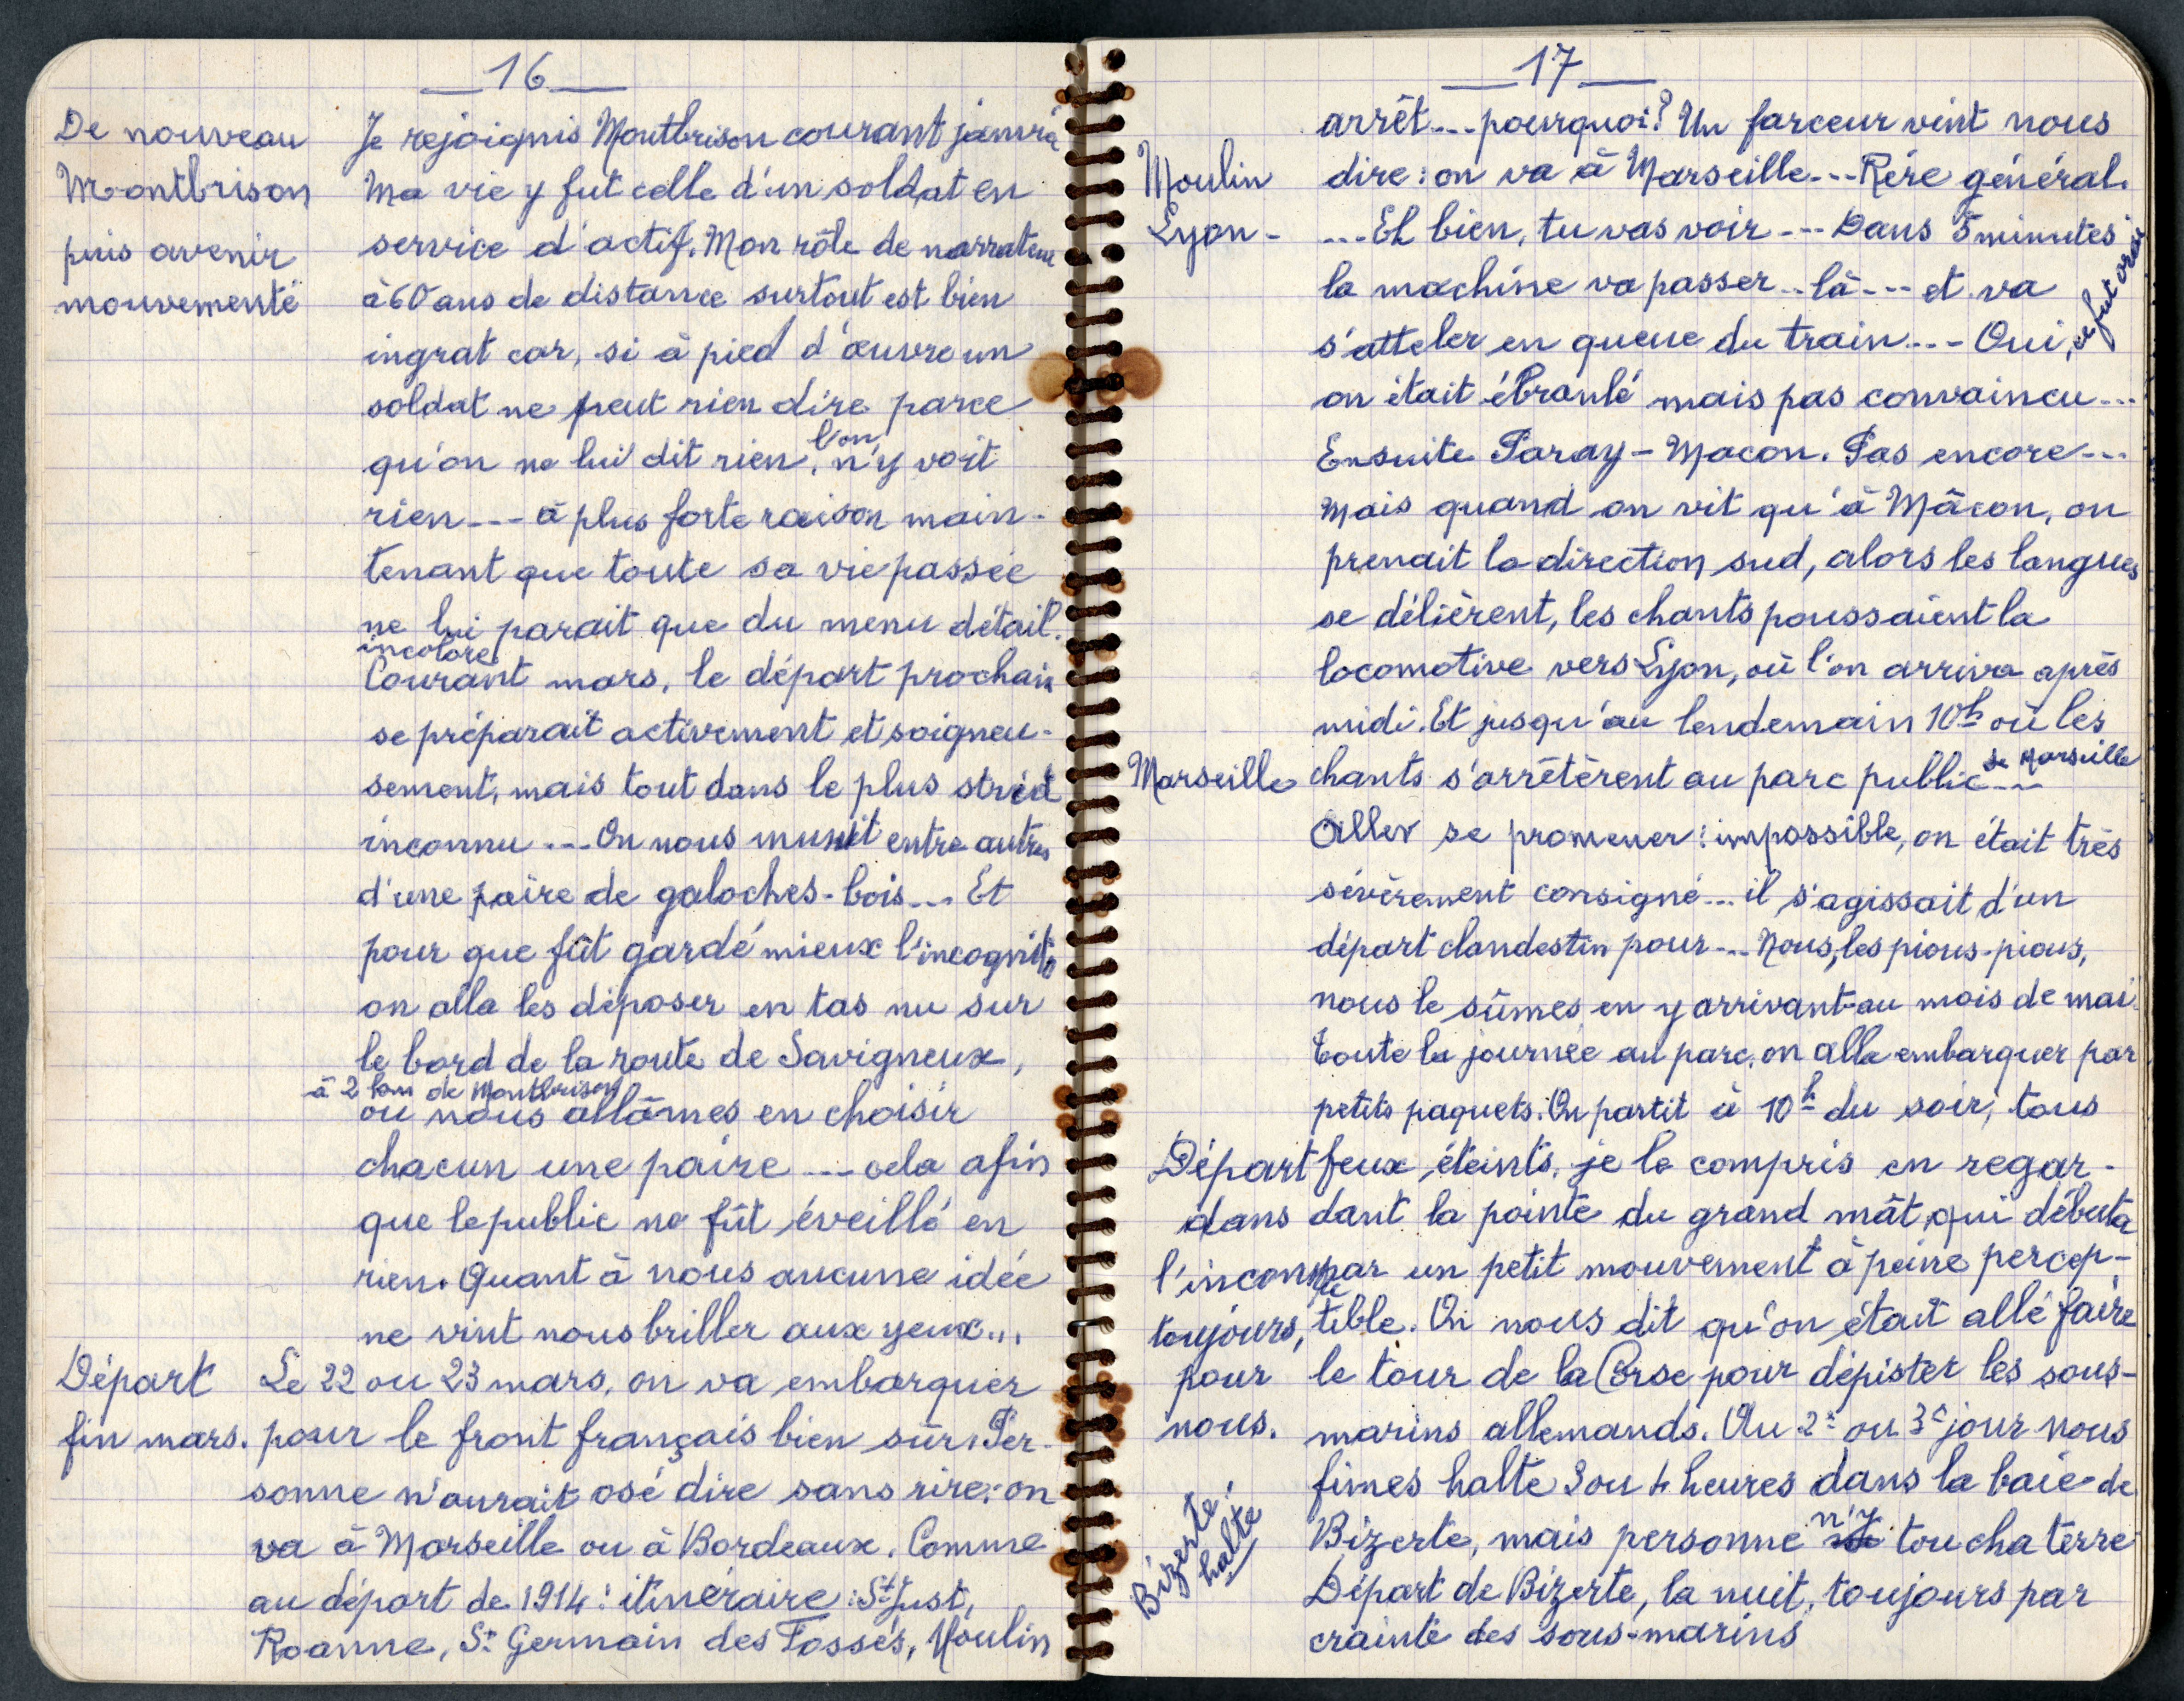 16
De nouveau
Montbrison
puis avenir
mouvementé
Je rejoignis Montbrison courant janvier
Ma vie y fut celle d'un soldat en
service d'actif. Mon rôle de narrateur
à 60 ans de distance surtout est bien
ingrat car, si à pied d'œuvre un
soldat ne peut rien dire parce
l'on
qu'on ne lui dit rien, n'y voit
rien --- à plus forte raison main-
tenant que toute sa vie passée
ne lui parait que du menu détail.
incolore
Courant mars, le départ prochain
se préparait activement et soigneu-
sement, mais tout dans le plus strict
inconnu --- On nous munit entre autres
d'une paire de galoches-bois... Et
pour que fût gardé mieux l'incognito
on alla les déposer en tas nu sur
le bord de la route de Savigneux,
à 2 km de Montbrison
ou nous allâmes en choisir
chacun une paire --- cela afin
que le public ne fût éveillé en
rien. Quant à nous aucune idée
ne vint nous briller aux yeux...
Départ
fin mars.
Le 22 ou 23 mars, on va embarquer
pour le front français bien sûr. Per-
sonne n'aurait osé dire sans rire: on
va à Marseille ou à Bordeaux. Comme
au départ de 1914: itinéraire: St Just,
Roanne, St Germain des Fossés, Moulin
17
arrêt... pourquoi? Un farceur vint nous
Moulin
Lyon -
dire: on va à Marseille --- Rire général.
... Eh bien, tu vas voir --- Dans 5 minutes
la machine va passer .. là --- et va
s'atteler en queue du train --- Oui,
ce fut vrai
on était ébranlé mais pas convaincu...
Ensuite Paray - Macon. Pas encore...
Mais quand on vit qu'à Mâcon, on
prenait la direction sud, alors les langues
se délièrent, les chants poussaient la
locomotive vers Lyon, où l'on arriva après
midi. Et jusqu'au lendemain 10h où les
de Marseille
Marseille
chants s'arrêtèrent au parc public ---
Aller se promener: impossible, on était très
sévèrement consigné... il s'agissait d'un
départ clandestin pour... Nous, les pious-pious,
nous le sûmes en y arrivant au mois de mai
Toute la journée au parc, on alla embarquer par
petits paquets. On partit à 10h du soir, tous
Départ
dans
l'inconnu
toujours,
pour
nous.
feux éteints. je le compris en regar-
dant la pointe du grand mât, qui débuta
par un petit mouvement à peine percep-
tible. On nous dit qu'on était allé faire
le tour de la Corse pour dépister les sous-
marins allemands. Au 2e ou 3e jour nous
fîmes halte 3 ou 4 heures dans la baie de
Bizerte!
halte
n'y
Bizerte, mais personne toucha terre
Départ de Bizerte, la nuit, toujours par
crainte des sous-marins